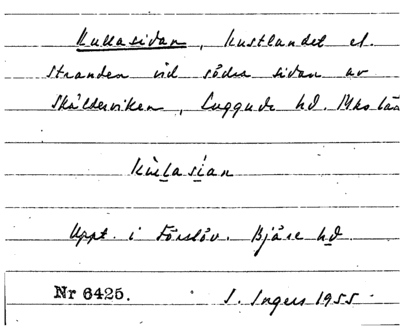 Kullasidan, kustlandet el.
stranden vid södra sidan av
Skälderviken, Luggude hd. Mko län
Kùllasían
Uppt. i Förslöv. Bjäre hd
Nr 6425. I. Ingers 1955